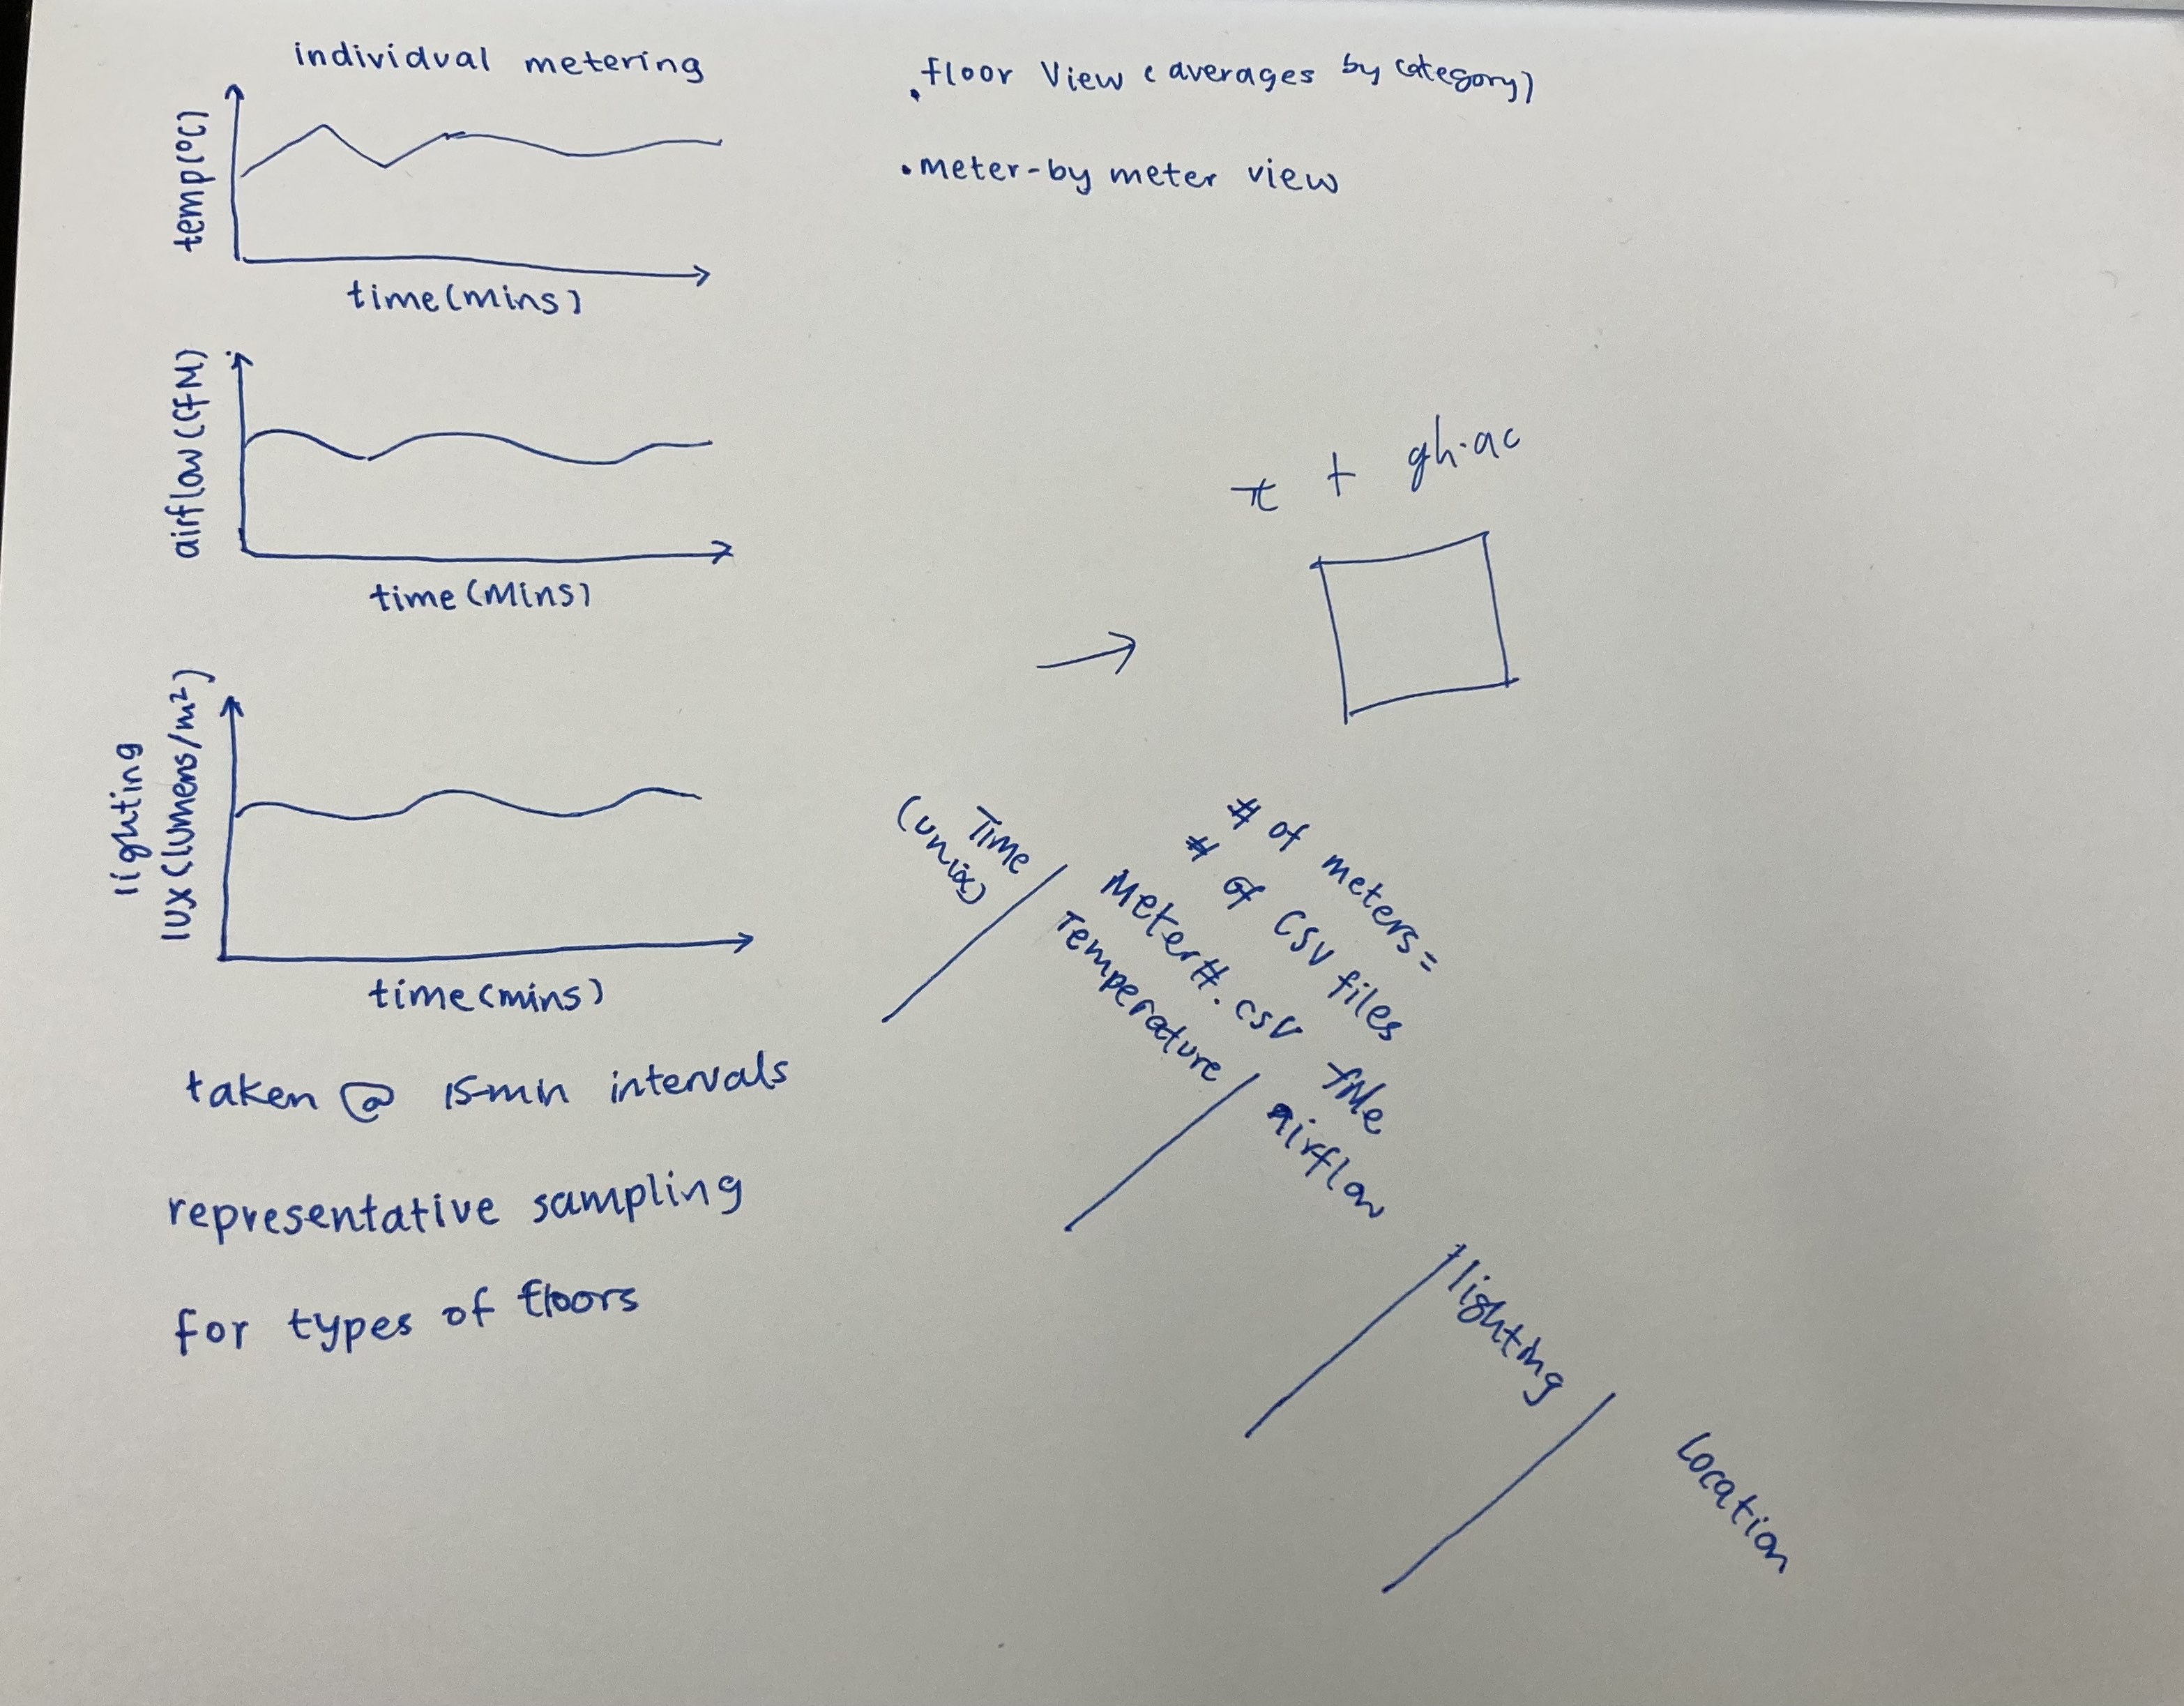 individual metering
temp(°C)
time(mins)
airflow(CFM)
time(Mins)
lighting
lux(lumens/m²)
time(mins)
taken @ 15-min intervals
representative sampling
for types of floors
. floor View (averages by category)
• meter-by meter view
π + gh.ac
# of meters =
# of CSV files
Meter#.csv file
Time
(unix)
Temperature
airflow
lighting
Location